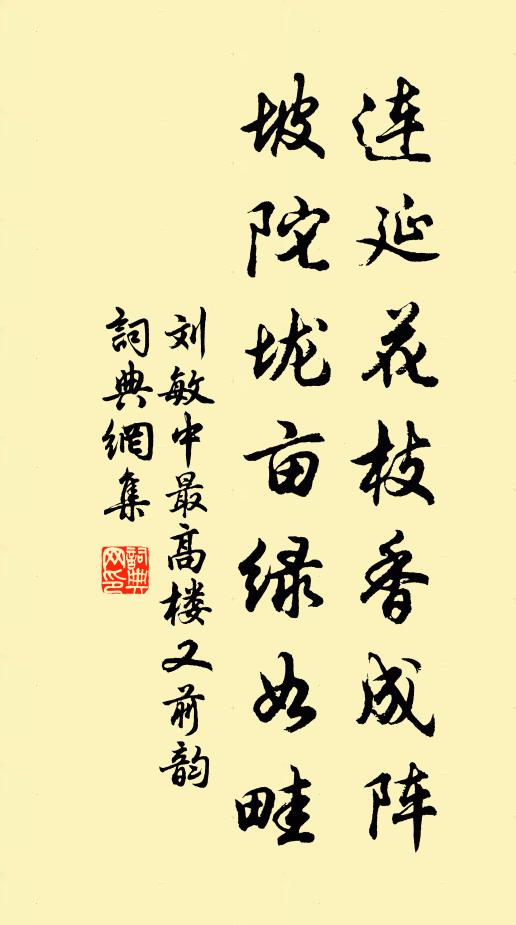 连延花枝香成阵
坡陀垅亩绿如畦
刘敏中最高楼又前韵
詞典網集
詞典网印